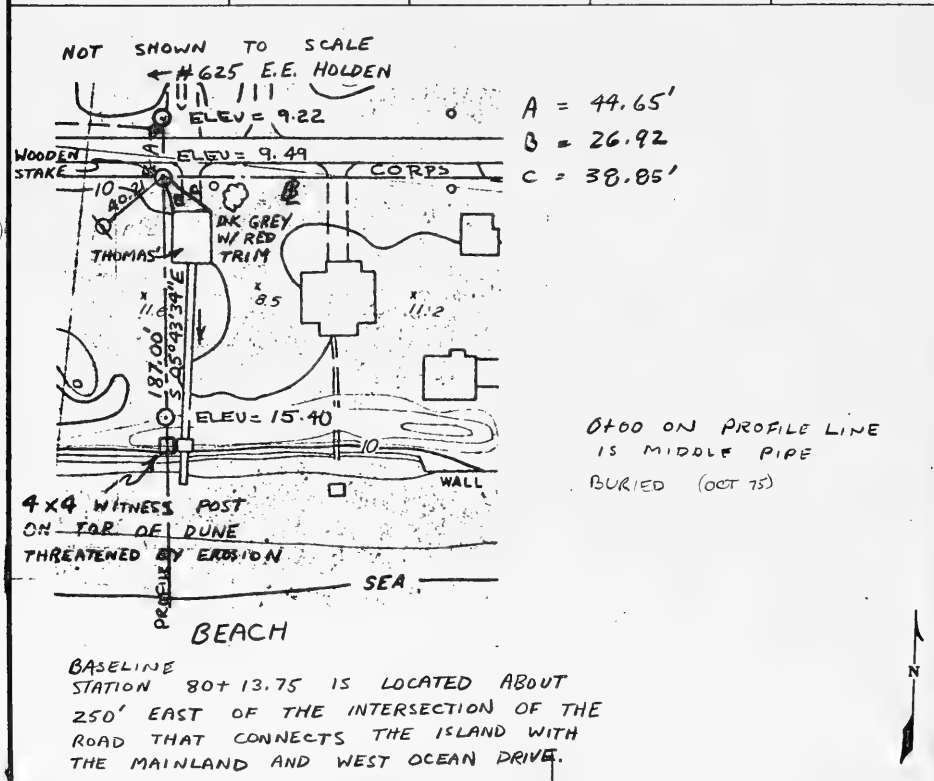 NOT SHOWN TO SCALE
← #625 E.E. HOLDEN
ELEV = 9.22
A
WOODEN
STAKE
ELEV = 9.49
CORPS
10
40.2'
B
C
DK GREY
W/ RED
TRIM
THOMAS'
11.8
8.5
11.2
187.00'
S 05° 43' 34" E
ELEV = 15.40
10
WALL
4 x 4 WITNESS POST
ON TOP OF DUNE
THREATENED BY EROSION
SEA
PROFILE
BEACH
A = 44.65'
B = 26.92
C = 38.85'
0+00 ON PROFILE LINE
IS MIDDLE PIPE
BURIED (OCT 75)
N
BASELINE
STATION 80+13.75 IS LOCATED ABOUT
250' EAST OF THE INTERSECTION OF THE
ROAD THAT CONNECTS THE ISLAND WITH
THE MAINLAND AND WEST OCEAN DRIVE.